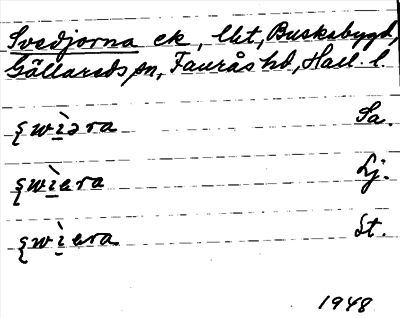 Svedjorna ek, lht, Buskabygd,
Gällareds sn, Faurås hd, Hall. l.
ʂwìəra Sa.
ʂwìɐra Lj.
ʂwìɐra St.
1948